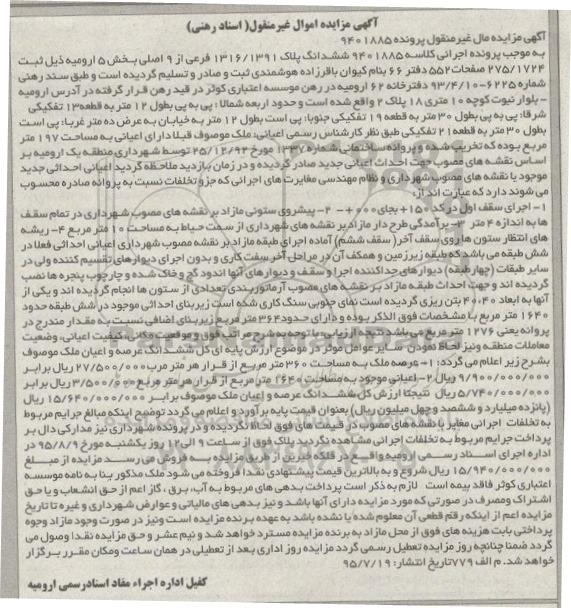 آگهی مزایده اموال غیرمنقول( اسناد رهنی)
آگهی مزایده مال غیرمنقول پرونده ۹۴۰۱۸۸۵
به موجب پرونده اجرائی کلاسه ۹۴۰۱۸۸۵ ششدانگ پلاک ۱۳۱۶/۱۳۹۱ فرعی از ۹ اصلی بخش ۵ ارومیه ذیل ثبت
۲۷۵/۱۷۲۴ صفحات ۵۵۲ دفتر ۶۶ بنام کیوان باقرزاده هوشمندی ثبت و صادر و تسلیم گردیده است و طبق سند رهنی
شماره ۶۲۲۵-۹۳/۴/۱۰ دفترخانه ۶۲ ارومیه در رهن موسسه اعتباری کوثر در قید رهن قرار گرفته در آدرس ارومیه
- بلوار نبوت کوچه ۱۰ متری ۱۸ پلاک ۲ واقع شده است و حدود اربعه شمالا : پی به پی بطول ۱۲ متر به قطعه ۱۳ تفکیکی
شرقا: پی به پی بطول ۳۰ متر به قطعه ۱۹ تفکیکی جنوبا: پی است بطول ۱۲ متر به خیابان به عرض ده متر غربا: پی است
بطول ۳۰ متر به قطعه ۲۱ تفکیکی طبق نظر کارشناس رسمی اعیانی: ملک موصوف قبلا دارای اعیانی به مساحت ۱۹۷ متر
مربع بوده که تخریب شده و پروانه ساختمانی شماره ۱۳۳۷ مورخ ۲۵/۱۲/۹۲ توسط شهرداری منطقه یک ارومیه بر
اساس نقشه های مصوب جهت احداث اعیانی جدید صادر گردیده و در زمان بازدید ملاحظه گردید اعیانی احداثی جدید
موجود با نقشه های مصوب شهرداری و نظام مهندسی مغایرت های اجرائی که جزو تخلفات نسبت به پروانه صادره محسوب
می شوند دارد که عبارت اند از:
۱- اجرای سقف اول در کد ۱۵۰+ بجای ۰۰۰+- ۲- پیشروی ستونی مازاد بر نقشه های مصوب شهرداری در تمام سقف
ها به اندازه ۴ متر ۳- برآمدگی طرح دار مازاد بر نقشه های شهرداری از سمت حیاط به مساحت ۱۰ متر مربع ۴- ریشه
های انتظار ستون ها روی سقف آخر ( سقف ششم) آماده اجرای طبقه مازاد بر نقشه مصوب شهرداری اعیانی احداثی فعلا در
شش طبقه می باشد که طبقه زیرزمین و همکف آن در مراحل آخر سفت کاری و بدون اجرای دیوارهای تقسیم کننده ولی در
سایر طبقات (چهار طبقه) دیوارهای جدا کننده اجرا و سقف و دیوارهای آنها اندود گچ و خاک شده و چارچوب پنجره ها نصب
گردیده اند و جهت احداث طبقه مازاد بر نقشه های مصوب آرماتوربندی تعدادی از ستون ها انجام گردیده اند و یکی از
آنها به ابعاد ۴۰*۴۰ بتن ریزی گردیده است نمای جنوبی سنگ کاری شده است زیربنای احداثی موجود در شش طبقه حدود
۱۶۴۰ متر مربع با مشخصات فوق الذکر بوده و دارای حدود ۳۶۴ متر مربع زیربنای اضافی نسبت به مقدار مندرج در
پروانه یعنی ۱۲۷۶ متر مربع می باشد نتیجه ارزیابی: با توجه به شرح مراتب فوق و موقعیت مکانی، کیفیت اعیانی، وضعیت
معاملات منطقه و نیز لحاظ نمودن سایر عوامل موثر در موضوع ارزش پایه ای کل ششدانگ عرصه و اعیان ملک موصوف
بشرح زیر اعلام می گردد: ۱- عرصه ملک به مساحت ۳۶۰ متر مربع از قرار هر متر مربع ۲۷/۵۰۰/۰۰۰ ریال برابر
۹/۹۰۰/۰۰۰/۰۰۰ ریال ۲- اعیانی موجود به مساحت ۱۶۴۰ متر مربع از قرار هر متر مربع ۳/۵۰۰/۰۰۰ ریال برابر
۵/۷۴۰/۰۰۰/۰۰۰ ریال نتیجتا ارزش کل ششدانگ عرصه و اعیان ملک موصوف برابر ۱۵/۶۴۰/۰۰۰/۰۰۰ ریال
(پانزده میلیارد و ششصد و چهل میلیون ریال) بعنوان قیمت پایه برآورد و اعلام می گردد توضیح اینکه مبالغ جرایم مربوط
به تخلفات اجرائی مغایر با نقشه های مصوب در قیمت های فوق لحاظ نگردیده و در پرونده شهرداری نیز مدارکی دال بر
پرداخت جرایم مربوط به تخلفات اجرائی مشاهده نگردید پلاک فوق از ساعت ۹ الی ۱۲ روز یکشنبه مورخ ۹۵/۸/۹ در
اداره اجرای اسناد رسمی ارومیه واقع در فلکه خیرین از طریق مزایده به فروش می رسد مزایده از مبلغ
۱۵/۹۴۰/۰۰۰/۰۰۰ ریال شروع و به بالاترین قیمت پیشنهادی نقدا فروخته می شود ملک مذکور بنا به نامه موسسه
اعتباری کوثر فاقد بیمه است لازم به ذکر است پرداخت بدهی های مربوط به آب، برق ، گاز اعم از حق انشعاب و یا حق
اشتراک ومصرف در صورتی که مورد مزایده دارای آنها باشد و نیز بدهی های مالیاتی و عوارض شهرداری و غیره تا تاریخ
مزایده اعم از اینکه رقم قطعی آن معلوم شده یا نشده باشد به عهده برنده مزایده است و نیز در صورت وجود مازاد وجوه
پرداختی بابت هزینه های فوق از محل مازاد به برنده مزایده مسترد خواهد شد و نیم عشر و حق مزایده نقدا وصول می
گردد ضمنا چنانچه روز مزایده تعطیل رسمی گردد مزایده روز اداری بعد از تعطیلی در همان ساعت ومکان مقرر برگزار
خواهد شد. م الف ۷۷۹ تاریخ انتشار: ۹۵/۷/۱۹
کفیل اداره اجراء مفاد اسنادرسمی ارومیه